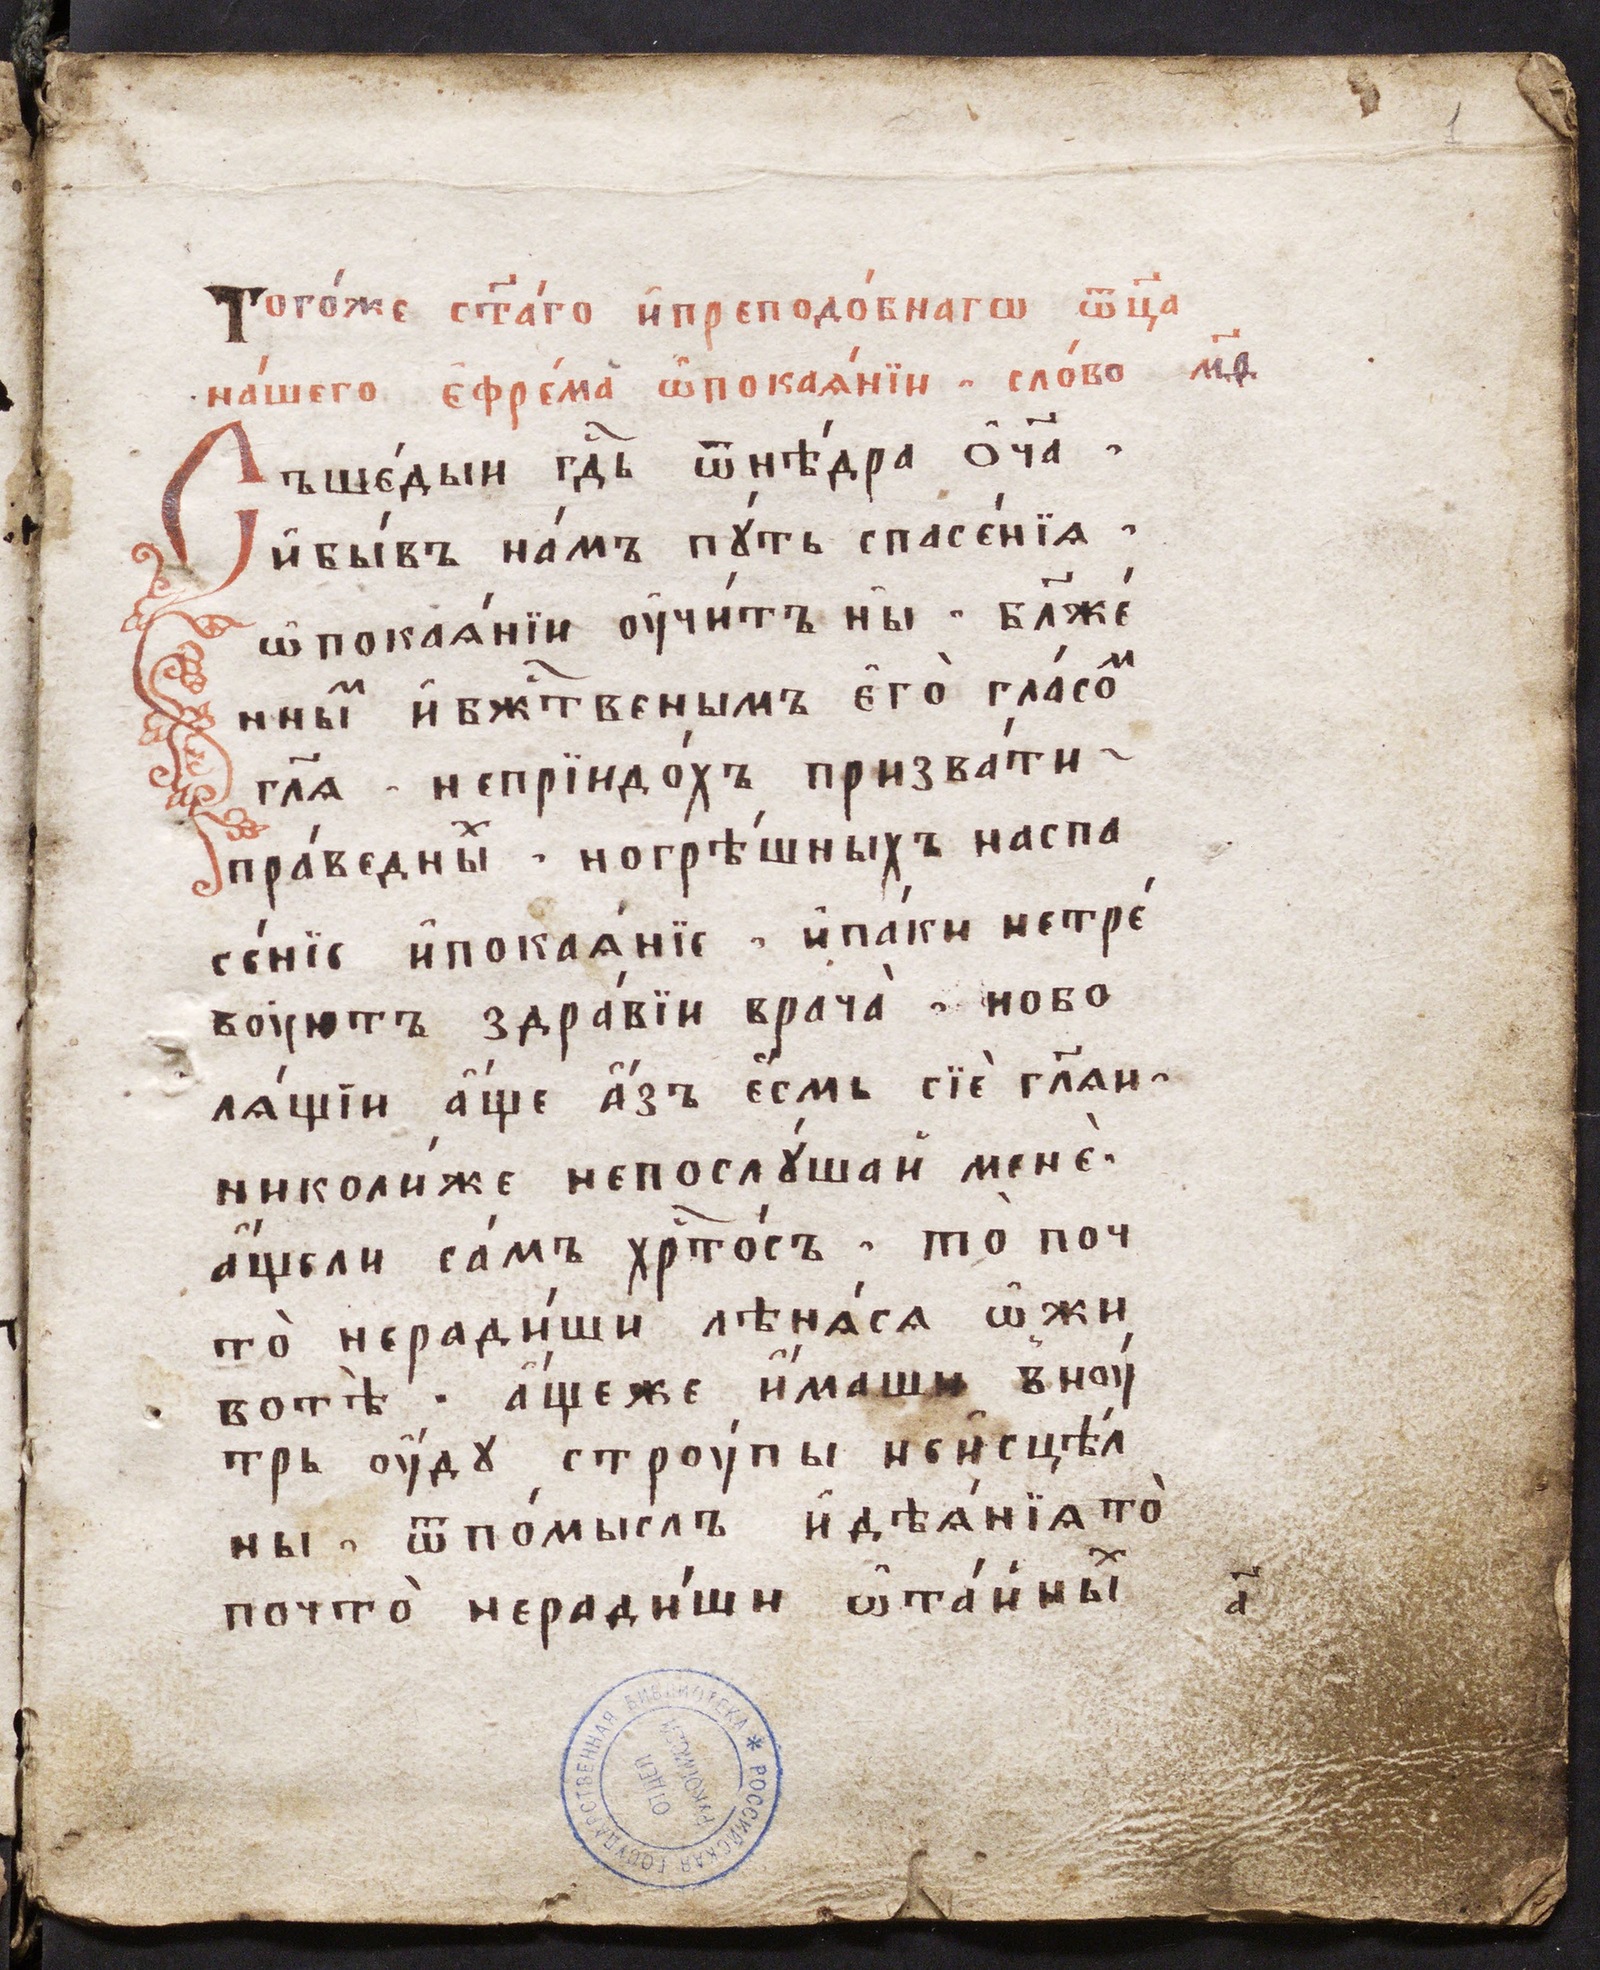 1
Того́же ст҃а́го и҆преподо́бнагѡ ѿц҃а
на́шего є҆фре́ма ѡ҆покаѧ́нїи · сло́во м҃д
Съше́дыи гд҇ь ѿнѣ́дра ѻ҆ч҃а ·
и҆бы́въ на́мъ пꙋ́ть спасе́нїѧ ·
ѡ҆покаѧ́нїи оу҆чи́тъ ны̑ · бл҃же́
нныⷨ и҆бж҇твенымъ є҆го̀ гла́соⷨ
гл҃ѧ · непрїидо́хъ призва́ти ~
пра́ведныⷯ · ногрѣ́шныхъ наспа
се́нїе и҆покаѧ́нїе · и҆па́ки нетре́
боуютъ здра́вїи врача̀ · нобо
лѧ́щїи а҆́ще а҆́зъ є҆́смь сїѐ гл҃ѧи ·
николи́же непослꙋ́шай менѐ ·
а҆́щели са́мъ хр҇то́съ · то̀ поч
то̀ неради́ши лѣнѧ́сѧ ѡ҆жи
вотѣ̀ · а҆́щеже и҆́маши в̾ноу́
трь оу҆́дꙋ строупы неи҆сцѣ́л
ны · ѿпо́мыслъ и҆дѣѧ́нїѧ то̀
почто̀ неради́ши ѡ҆та́йныⷯ
а҃
РОССИЙСКАЯ ГОСУДАРСТВЕННАЯ БИБЛИОТЕКА *
ОТДЕЛ
РУКОПИСЕЙ